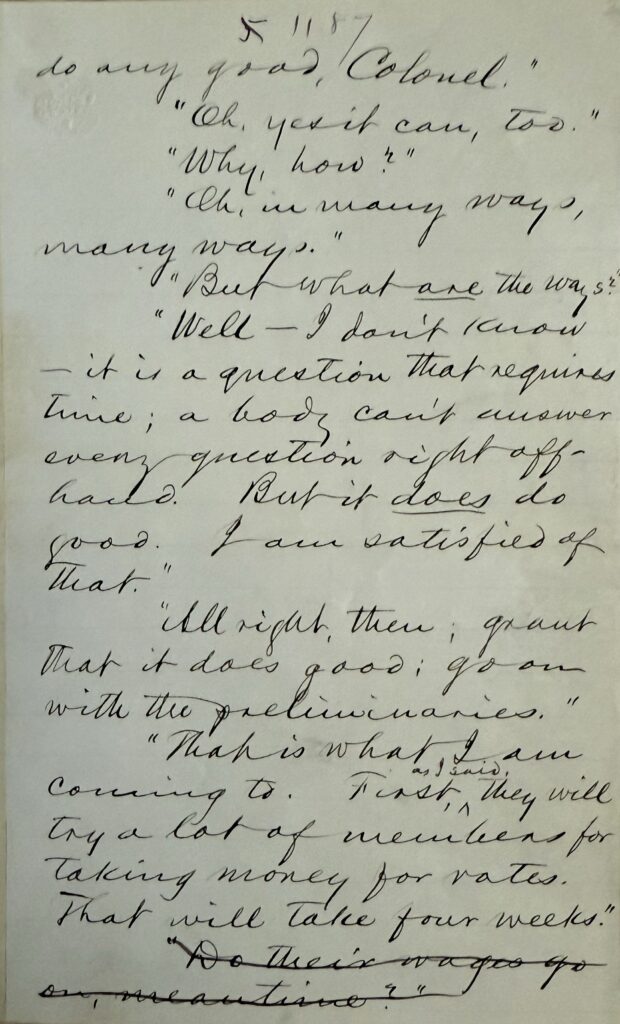 5 11 87
do any good, Colonel."
"Oh, yes it can, too."
"Why, how?"
"Oh, in many ways,
many ways."
"But what are the ways?"
"Well — I don't know
— it is a question that requires
time; a body can't answer
every question right off-
hand. But it does do
good. I am satisfied of
that."
"All right, then; grant
that it does good; go on
with the preliminaries."
"That is what I am
coming to. First, as I said, they will
try a lot of members for
taking money for votes.
That will take four weeks."
"Do their wages go
on, meantime?"